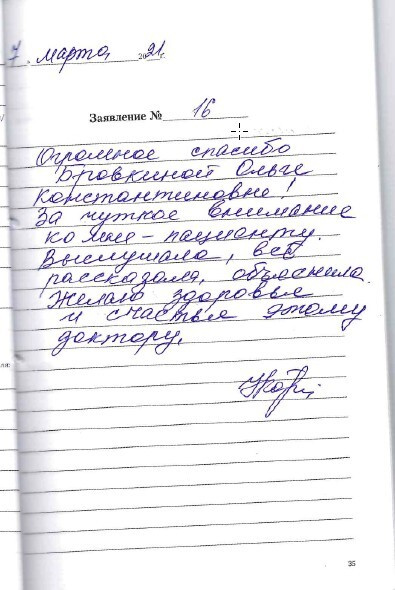 7. марта 2021 г.
Заявление № 16
Огромное спасибо
Бровкиной Ольге
Константиновне!
За чуткое внимание
ко мне – пациенту.
Выслушала, всё
рассказала, объяснила.
Желаю здоровья
и счастья этому
доктору.
35